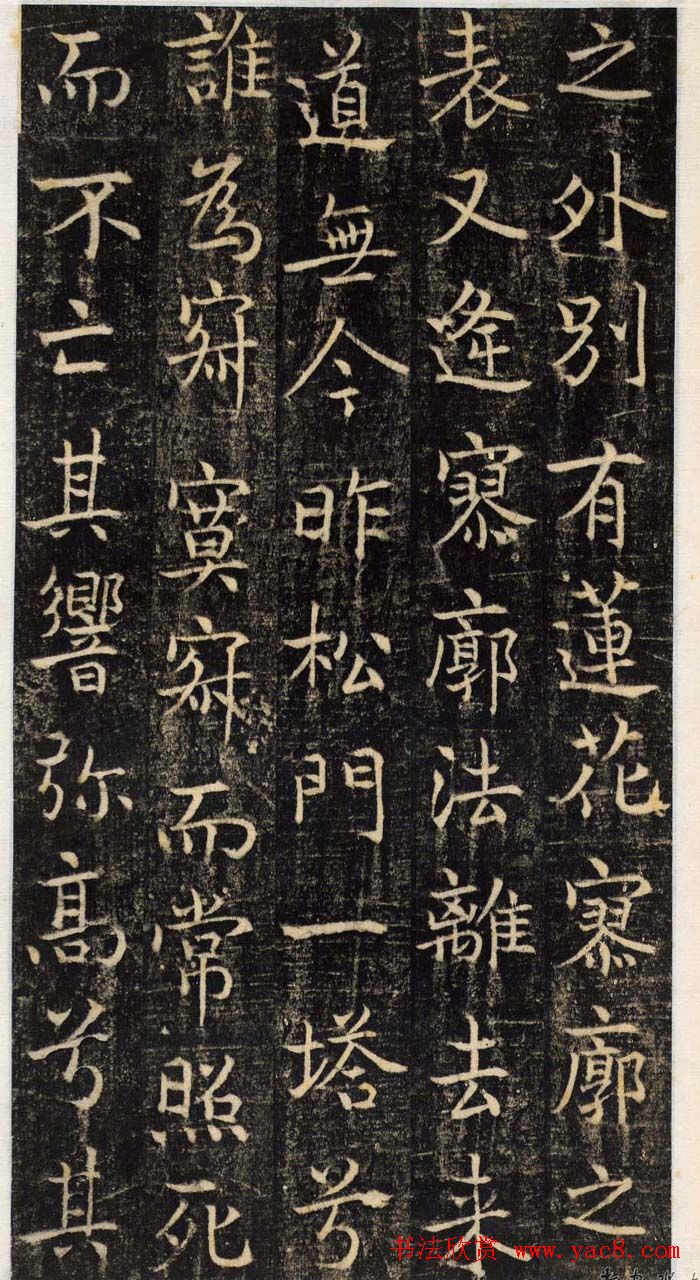 之外別有蓮花寥廓之
表又逢寥廓法離去来
道無今昨松門一塔兮
誰為寂寞寂而常照死
而不亡其響弥高兮其
书法欣赏 www.yac8.com